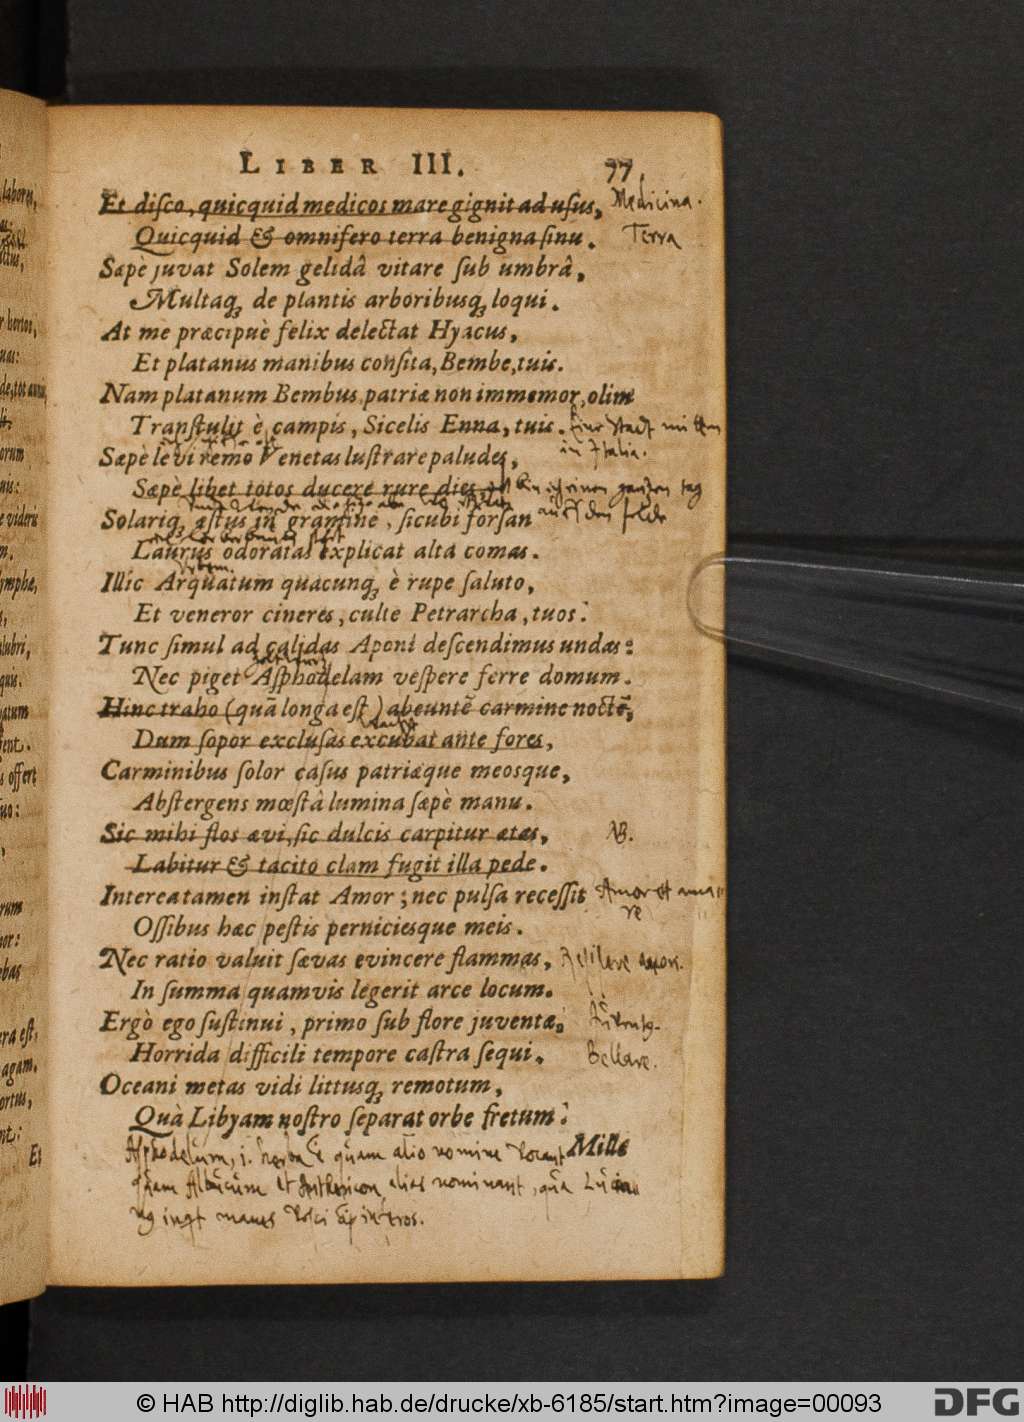 LIBER III. 77.
Et disco, quicquid medicos mare gignit ad usus, Medicina.
Quicquid & omnifero terra benigna sinu. Terra
Sæpè juvat Solem gelidâ vitare sub umbrâ,
Multaq; de plantis arboribusq; loqui.
At me præcipuè felix delectat Hyacus,
Et platanus manibus consita, Bembe, tuis.
Nam platanum Bembus, patriæ non immemor, olim
Transtulit è campis, Sicelis Enna, tuis. Eine Stadt
in Italia.
Sæpè levi remo Venetas lustrare paludes,
Sæpè libet totos ducere rure dies, bin ich einen gantzen tag
auff dem felde
Solariq; æstus in gramine, sicubi forsan
Laurus odoratas explicat alta comas.
Illic Arquatum quacunq; è rupe saluto,
Et veneror cineres, culte Petrarcha, tuos:
Tunc simul ad calidas Aponi descendimus undas:
Nec piget Asphodelam vespere ferre domum.
Hinc traho (quā longa est) abeuntē carmine noctē,
Dum sopor exclusas excubat ante fores,
Carminibus solor casus patriæque meosque,
Abstergens mœstâ lumina sæpè manu.
Sic mihi flos ævi, sic dulcis carpitur ætas, NB.
Labitur & tacito clam fugit illa pede.
Intereatamen instat Amor; nec pulsa recessit Amor et ama
re
Ossibus hæc pestis perniciesque meis.
Nec ratio valuit sævas evincere flammas,
In summa quamvis legerit arce locum.
Ergò ego sustinui, primo sub flore juventæ,
Horrida difficili tempore castra sequi. Bellare.
Oceani metas vidi littusq; remotum,
Quà Libyam nostro separat orbe fretum:
Mille
Asphodelum, i. herba quam alio nomine vocant
quam Albucum et alias nominant, qua
manes